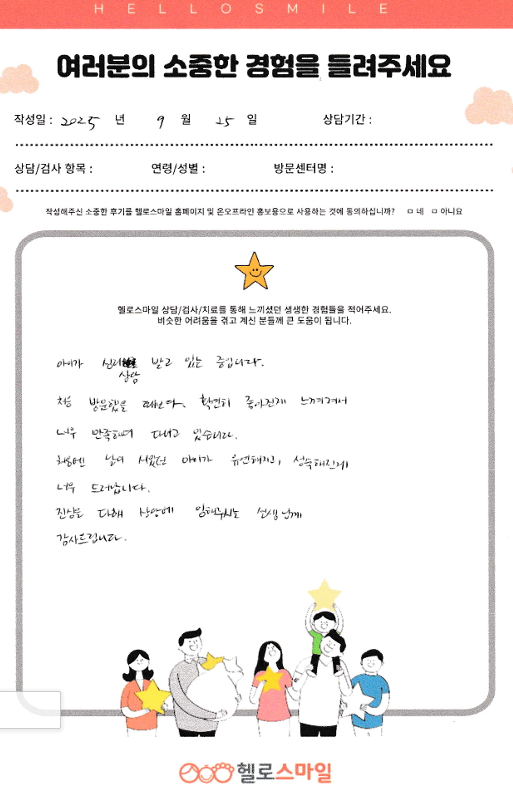 HELLOSMILE
여러분의 소중한 경험을 들려주세요
작성일 : 2025 년 9 월 25 일 상담기간 :
상담/검사 항목 : 연령/성별 : 방문센터명 :
작성해주신 소중한 후기를 헬로스마일 홈페이지 및 온오프라인 홍보용으로 사용하는 것에 동의하십니까? ㅁ 네 ㅁ 아니요
헬로스마일 상담/검사/치료를 통해 느끼셨던 생생한 경험들을 적어주세요.
비슷한 어려움을 겪고 계신 분들께 큰 도움이 됩니다.
아이가 심리 받고 있는 중입니다.
상담
처음 방문했을 때보다, 확연히 좋아진게 느껴져서
너무 만족하며 다니고 있습니다.
날이 서있던 아이가 유연해지고, 성숙해진게
너무 드러납니다.
진심을 다해 상담에 임해주시는 선생님께
감사드립니다.
헬로스마일